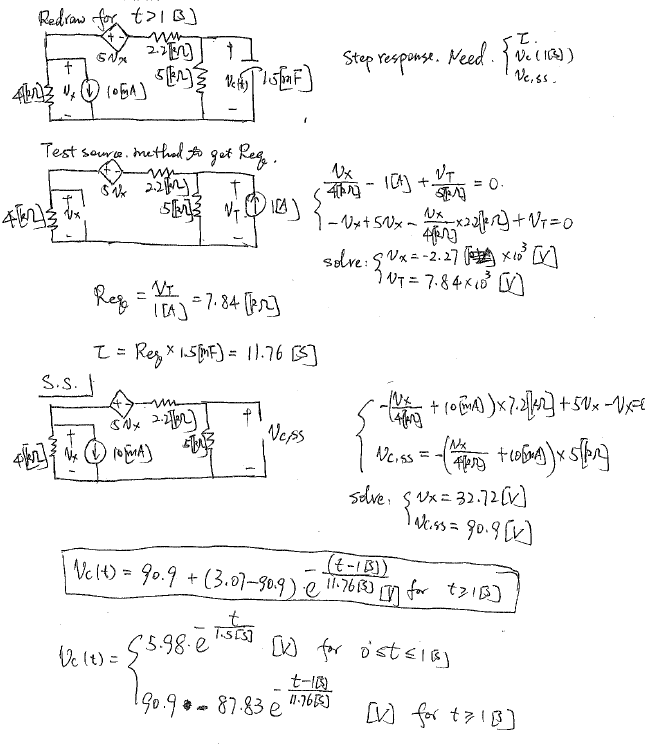 Redraw for t>1[S]
5Vx
2.2[kΩ]
4[kΩ]
+
Vx
-
10[mA]
5[kΩ]
+
Vc(t)
-
1.5[mF]
Step response. Need. { τ.
Vc(1[S])
Vc,ss.
Test source method to get Req.
5Vx
2.2[kΩ]
4[kΩ]
+
Vx
-
5[kΩ]
+
VT
-
1[A]
{ Vx/4[kΩ] - 1[A] + VT/5[kΩ] = 0.
-Vx+5Vx - Vx/4[kΩ] ×2.2[kΩ] + VT=0
solve: { Vx=-2.27 ×10³ [V]
VT= 7.84×10³ [V]
Req = VT/1[A] = 7.84 [kΩ]
τ = Req × 1.5[mF] = 11.76 [S]
S.S.
5Vx
2.2[kΩ]
4[kΩ]
+
Vx
-
10[mA]
5[kΩ]
+
Vc,ss
-
{ -(Vx/4[kΩ] + 10[mA])×7.2[kΩ] +5Vx -Vx=0
Vc,ss = -(Vx/4[kΩ] +10[mA])×5[kΩ]
solve, { Vx= 32.72[V]
Vc,ss= 90.9[V]
Vc(t) = 90.9 + (3.07-90.9)·e^-(t-1[S])/11.76[S] [V] for t≥1[S]
Vc(t) = { 5.98·e^-t/1.5[S] [V] for 0≤t≤1[S]
90.9 - 87.83 e^-t-1[S]/11.76[S] [V] for t≥1[S]